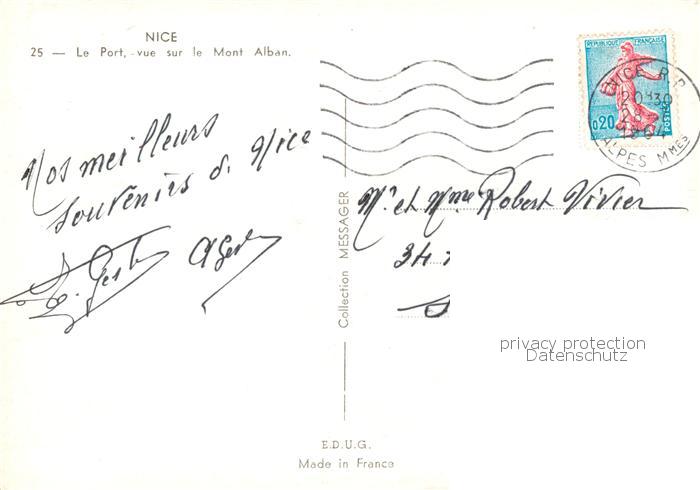 NICE
25 — Le Port, vue sur le Mont Alban.
REPUBLIQUE FRANÇAISE
0,20
POSTES
NICE R.P.
20H30
28
1964
ALPES MMES
Nos meilleurs
souvenirs de Nice
Collection MESSAGER
Mr et Mme Robert Vivier
34
privacy protection
Datenschutz
E.D.U.G.
Made in France